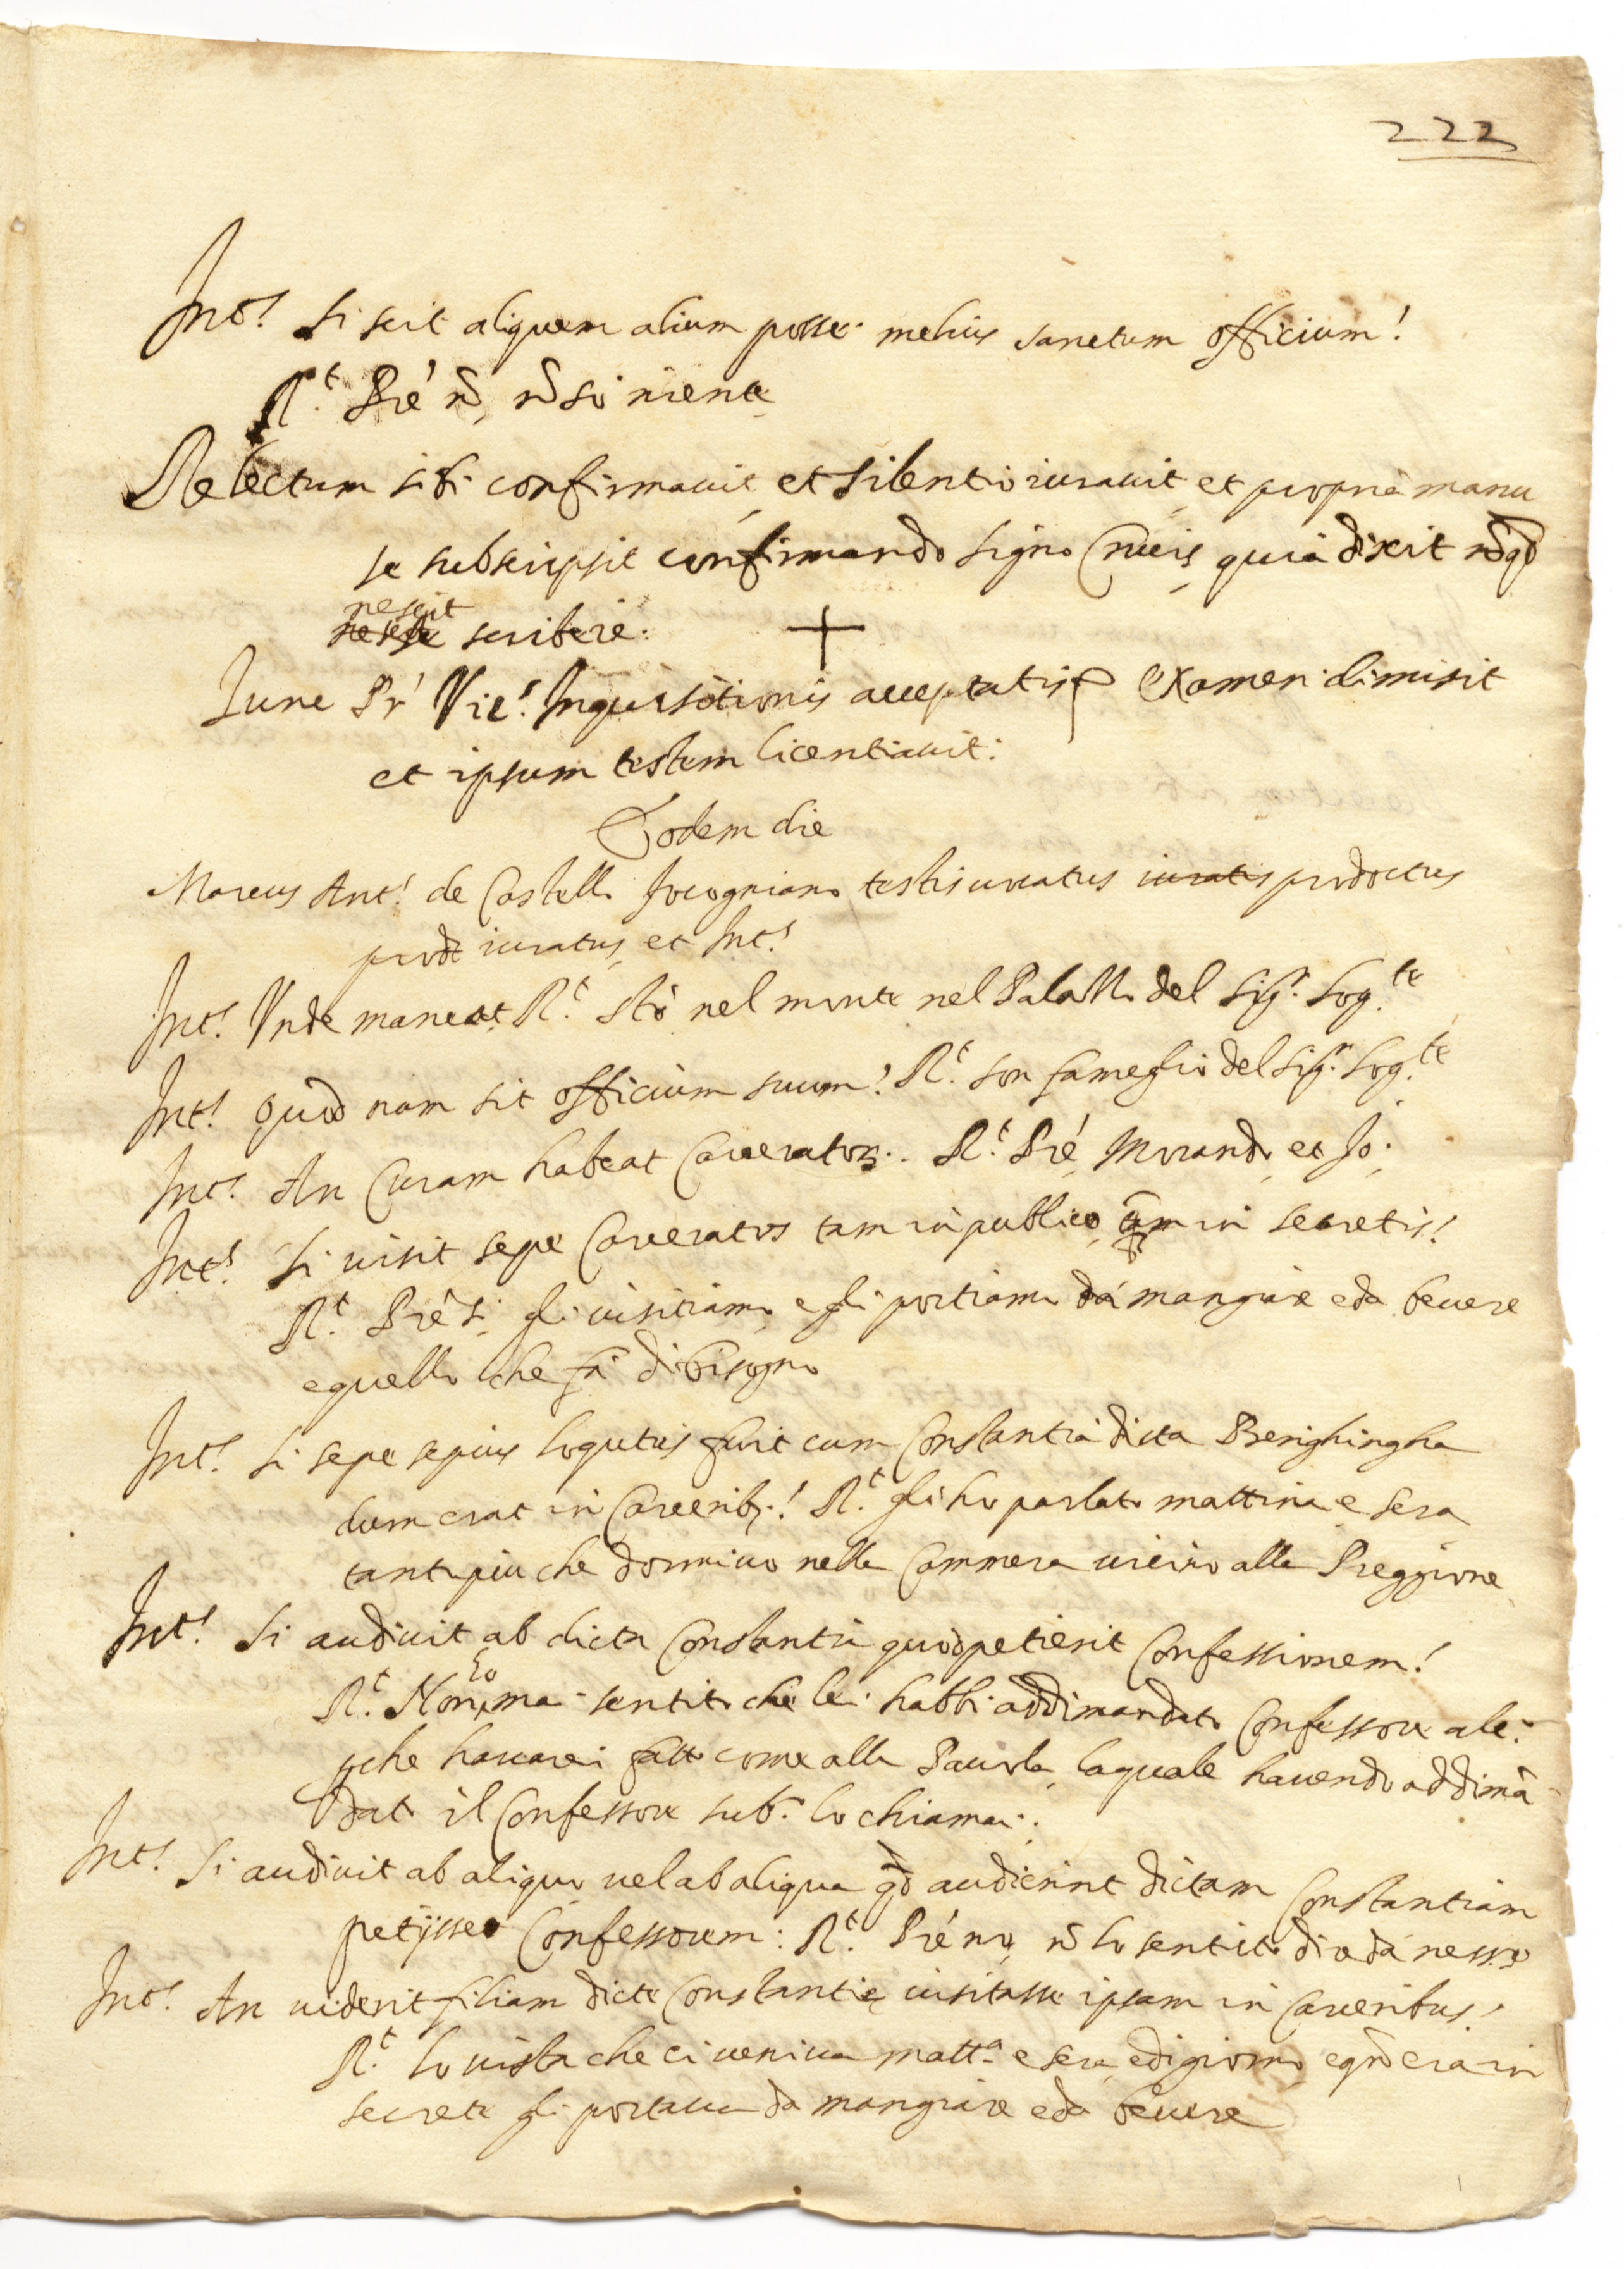 222
Int.s Si scit aliquem alium posse melius sanctum officium!
R.t Prè nõ, nõ sò niente
Relectum sibi confirmavit, et silentio iuravit, et propria manu
se subscripsit confirmando signo Crucis, quia dixit
nescit scribere. +
Tunc Pr Vic.s Inquisitionis acceptatis examen dimisit
et ipsum testem licentiavit.
Eodem die
Marcus Ant.s de Castello testis uocatus iuratus productus
prodt iuratus, et Int.s
Int.s Vnde maneat R.t Stò nel monte nel Palazzo del Sig.r Log.te
Int.s Quod nam sit officium suum! R.t son fameglio del Sig.r Log.te
Int.s An Curam habeat Carceratorum. R.t Pré, Morando, et Io.
Int.s Si uisit sepe Carceratos tam in publico, quam in secretis!
R.t Prè Si, gli uisitiamo, e gli portiamo da mangiare e da beuere
e quello che fà di bisogno
Int.s Si sepe sepius loqutus fuit cum Constantia dicta Benighingha
dum erat in Carcerib.! R.t gli hò parlato mattina e sera
tanto piu che dormiuo nella Cammera uicino alla Preggione
Int.s Si audiuit ab dicta Constantia quod petierit Confessionem!
R.t Non hò mai sentito che lei habbi addimandato Confessore a lei
che hauarei fatto come alla Pauola, la quale hauendo addimã
dato il Confessore sub.o lo chiamai.
Int.s Si audiuit ab aliquo uel ab aliqua qd audierint dictam Constantiam
petijsse Confessorem: R.t Prè no, nõ lo sentito dire da nessuno
Int.s An uiderit filiam dicte Constantie uisitasse ipsam in Carceribus!
R.t lo uista che ci ueniua matt.a e sera, e di giorno, e qñ era in
secrete gli portaua da mangiare e da beuere